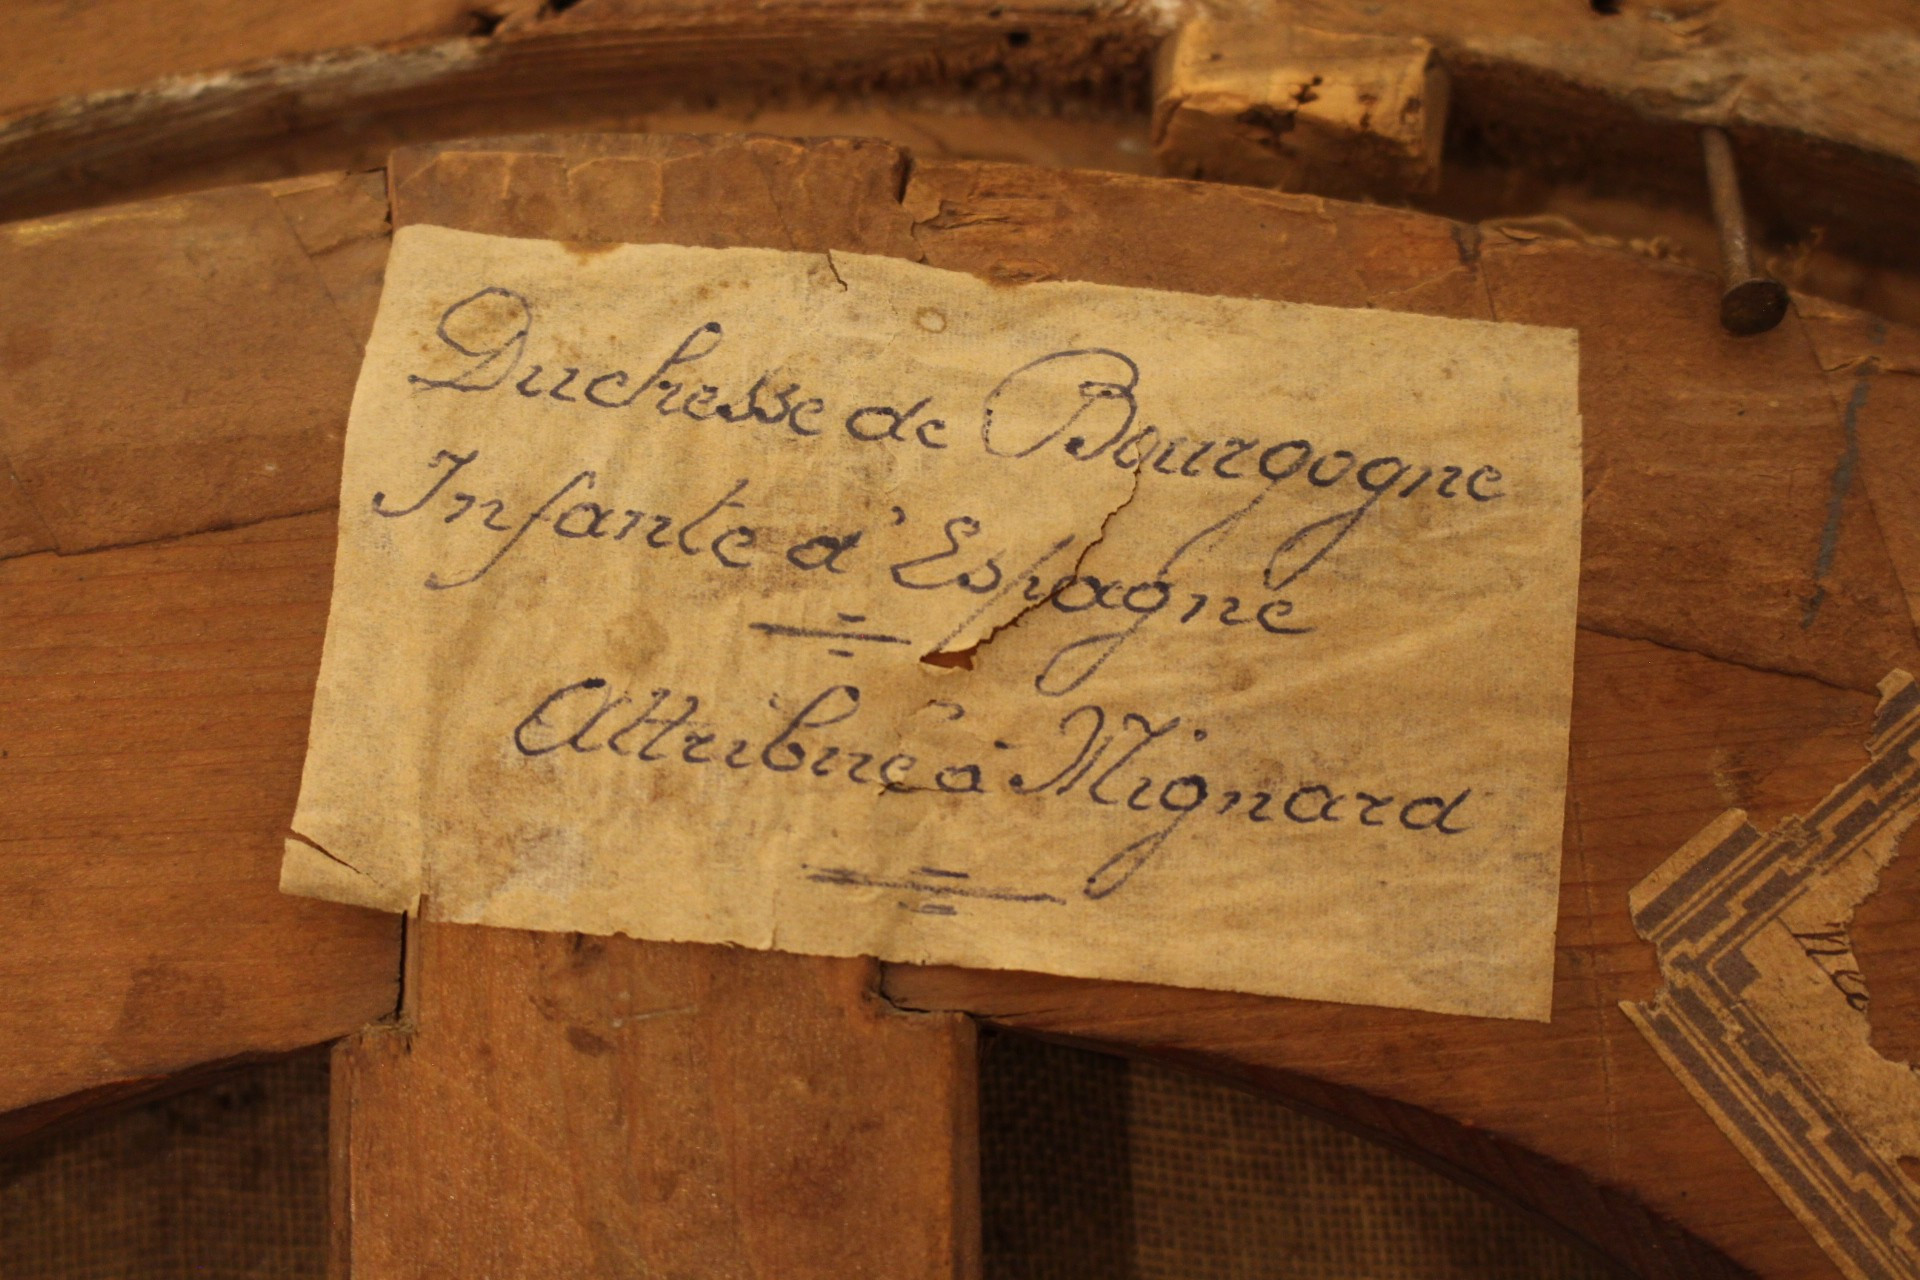 Duchesse de Bourgogne
Infante d'Espagne
Attribué à Mignard